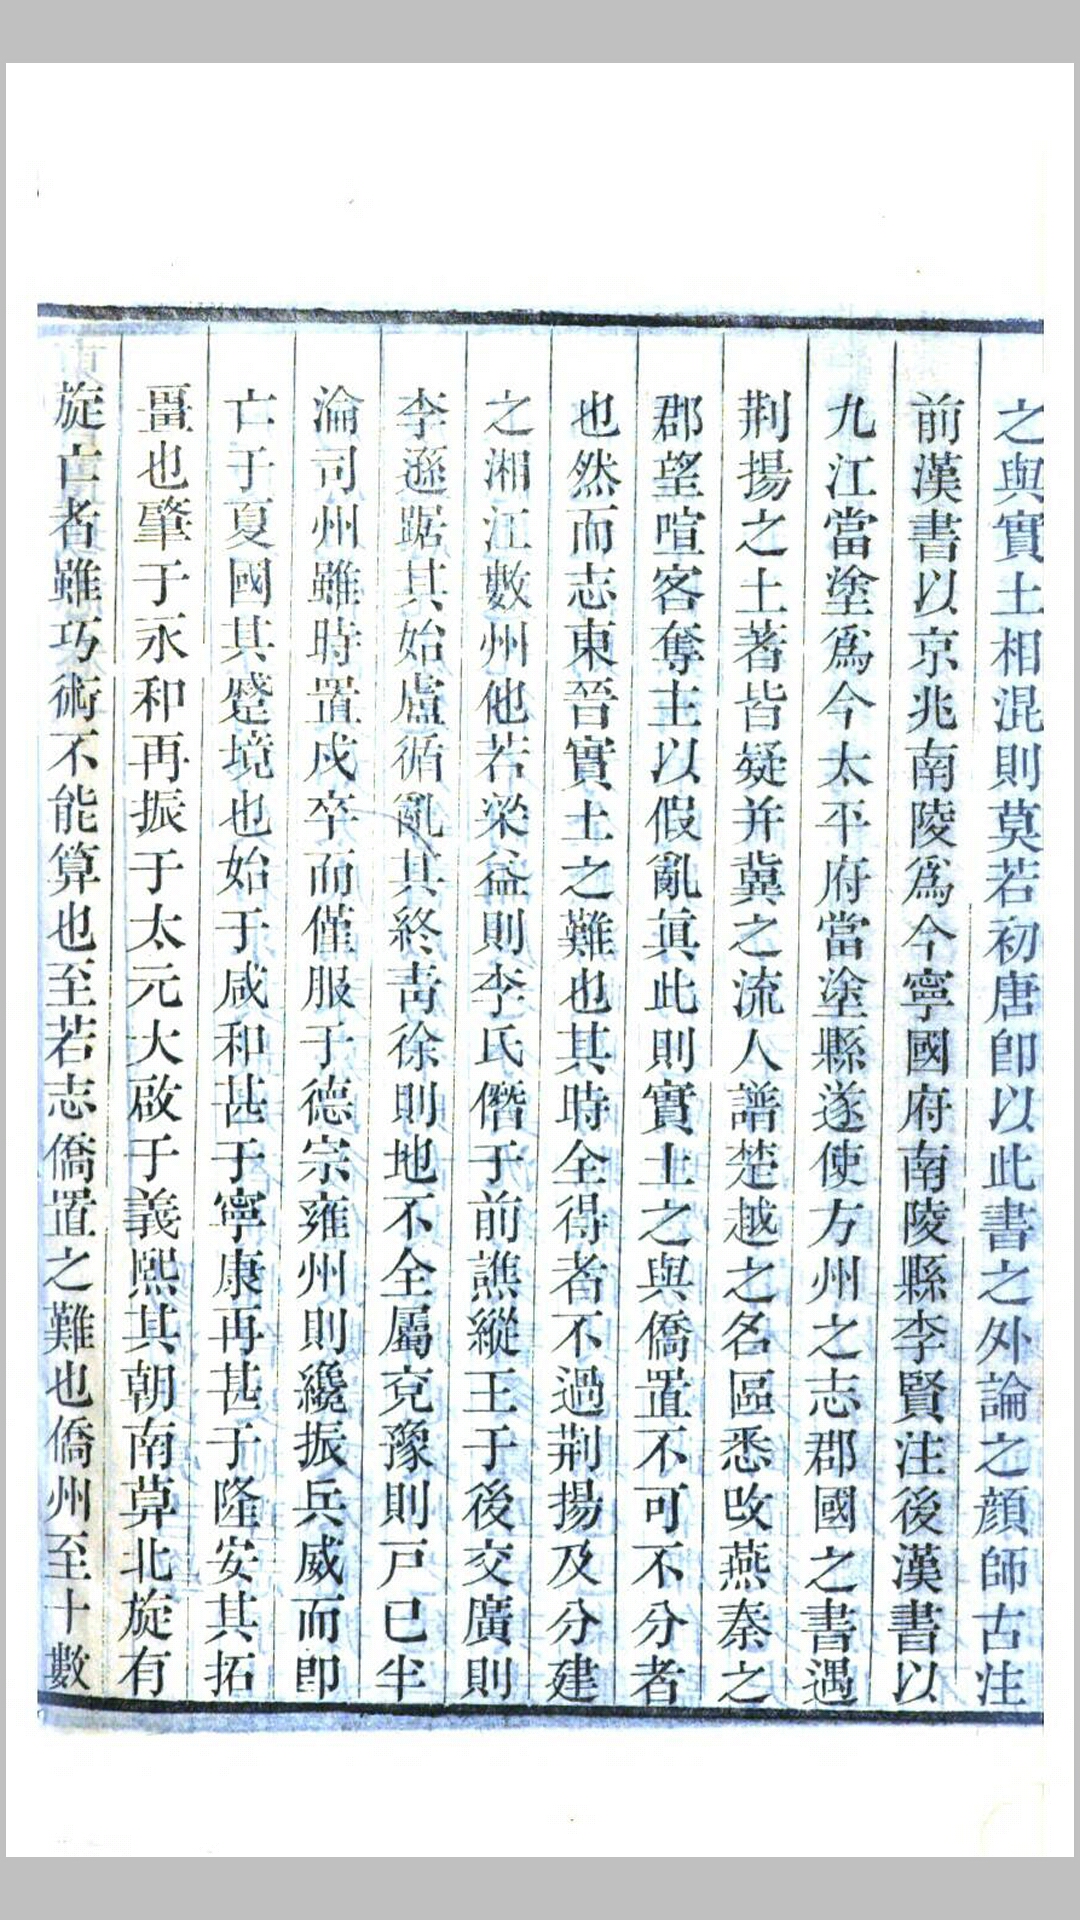 之與實土相混則莫若初唐卽以此書之外論之顔師古注
前漢書以京兆南陵爲今寧國府南陵縣李賢注後漢書以
九江當塗爲今太平府當塗縣遂使方州之志郡國之書遇
荆揚之土著皆疑并冀之流人譜楚越之名區悉改燕秦之
郡望喧客奪主以假亂眞此則實土之與僑置不可不分者
也然而志東晉實土之難也其時全得者不過荆揚及分建
之湘江數州他若梁益則李氏僭于前譙縱王于後交廣則
李遜踞其始盧循亂其終靑徐則地不全屬兗豫則戸已半
淪司州雖時置戍卒而僅服于德宗雍州則纔振兵威而卽
亡于夏國其蹙境也始于咸和甚于寧康再甚于隆安其拓
畺也肇于永和再振于太元大啟于義熙其朝南暮北旋有
旋亡者雖巧術不能算也至若志僑置之難也僑州至十數